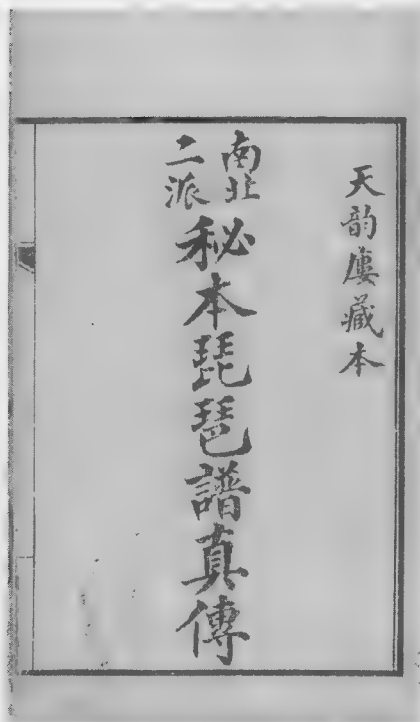 天韵廔藏本
南北
二派
秘本琵琶譜真傳